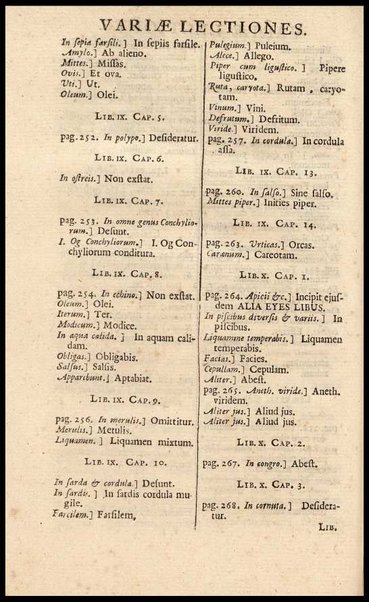 VARIÆ LECTIONES.
In sepia farsili.] In sepiis farsile.
Amylo.] Ab alieno.
Mittes.] Missas.
Ovis.] Et ova.
Uti.] Ut.
Oleum.] Olei.
LIB. IX. CAP. 5.
pag. 252. In polypo.] Desideratur.
LIB. IX. CAP. 6.
In ostreis.] Non exstat.
LIB. IX. CAP. 7.
pag. 253. In omne genus Conchylio-
rum.] Desunt.
I. Og Conchyliorum.] I. Og Con-
chyliorum conditura.
LIB. IX. CAP. 8.
pag. 254. In echino.] Non exstat.
Oleum.] Olei.
Iterum.] Ter.
Modicum.] Modice.
In aqua calida.] In aquam cali-
dam.
Obligas.] Obligabis.
Salsus.] Salsis.
Apparebunt.] Aptabiat.
LIB. IX. CAP. 9.
pag. 256. In merulis.] Omittitur.
Merulis.] Metulis.
Liquamen.] Liquamen mixtum.
LIB. IX. CAP. 10.
In sarda & cordula.] Desunt.
In sardis.] In sardis cordula mu-
gile.
Farcilem.] Farsilem,
Pulegium.] Puleium.
Alece.] Allego.
Piper cum ligustico.] Pipere
ligustico.
Ruta, caryota.] Rutam, caryo-
tam.
Vinum.] Vini.
Defrutum.] Defritum.
Viride.] Viridem.
pag. 257. In cordula.] In cordula
assa.
LIB. IX. CAP. 13.
pag. 260. In salso.] Sine salso.
Mittes piper.] Inities piper.
LIB. IX. CAP. 14.
pag. 263. Urticas.] Orcas.
Caranum.] Careotam.
LIB. X. CAP. 1.
pag. 264. Apicii &c.] Incipit ejus-
dem ALIA EYES LIBUS.
In piscibus diversis & variis.] In
piscibus.
Liquamine temperabis.] Liquamen
temperabis.
Facias.] Facies.
Cepullam.] Cepulam.
Aliter.] Abest.
pag. 265. Aneth. viride.] Aneth.
viridem.
Aliter jus.] Aliud jus.
Aliter jus.] Aliud jus.
LIB. X. CAP. 2.
pag. 267. In congro.] Abest.
LIB. X. CAP. 3.
pag. 268. In cornuta.] Desidera-
tur.
LIB.